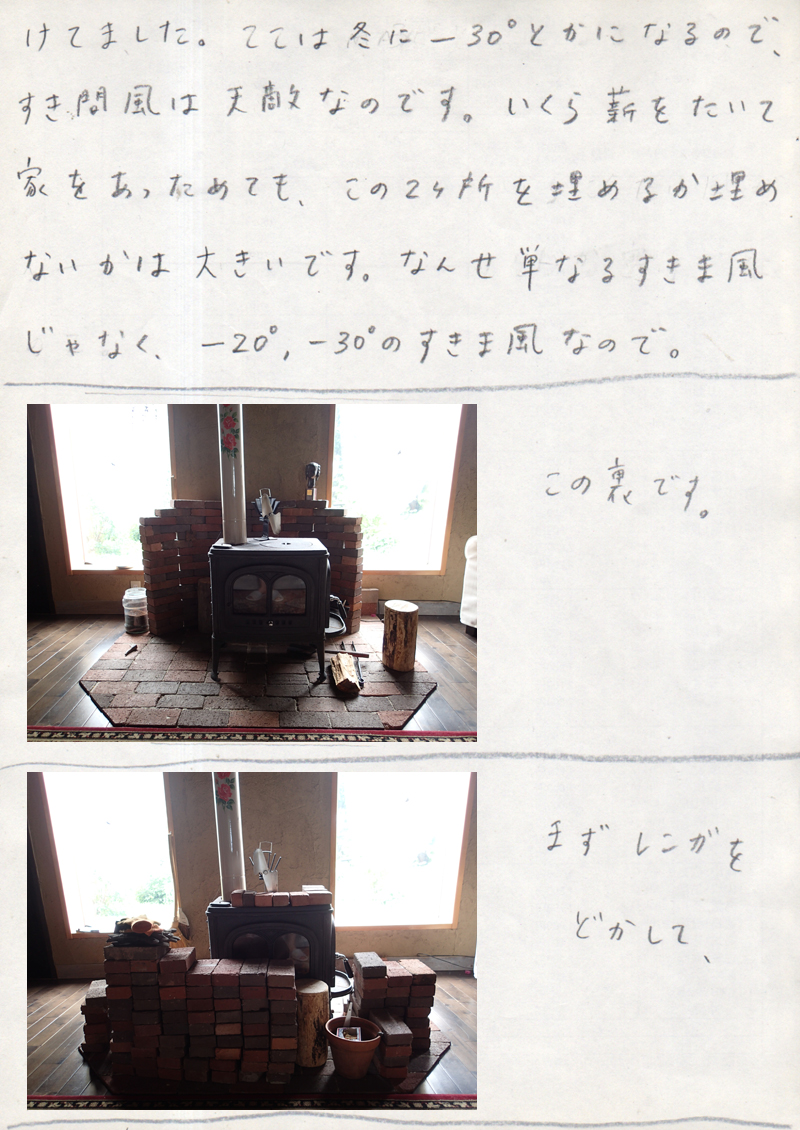 けてました。ここは冬に−30°とかになるので、
すき間風は天敵なのです。いくら薪をたいて
家をあっためても、この2ヶ所を埋めるか埋め
ないかは大きいです。なんせ単なるすきま風
じゃなく、−20°,−30°のすきま風なので。
この裏です。
まずレンガを
どかして、